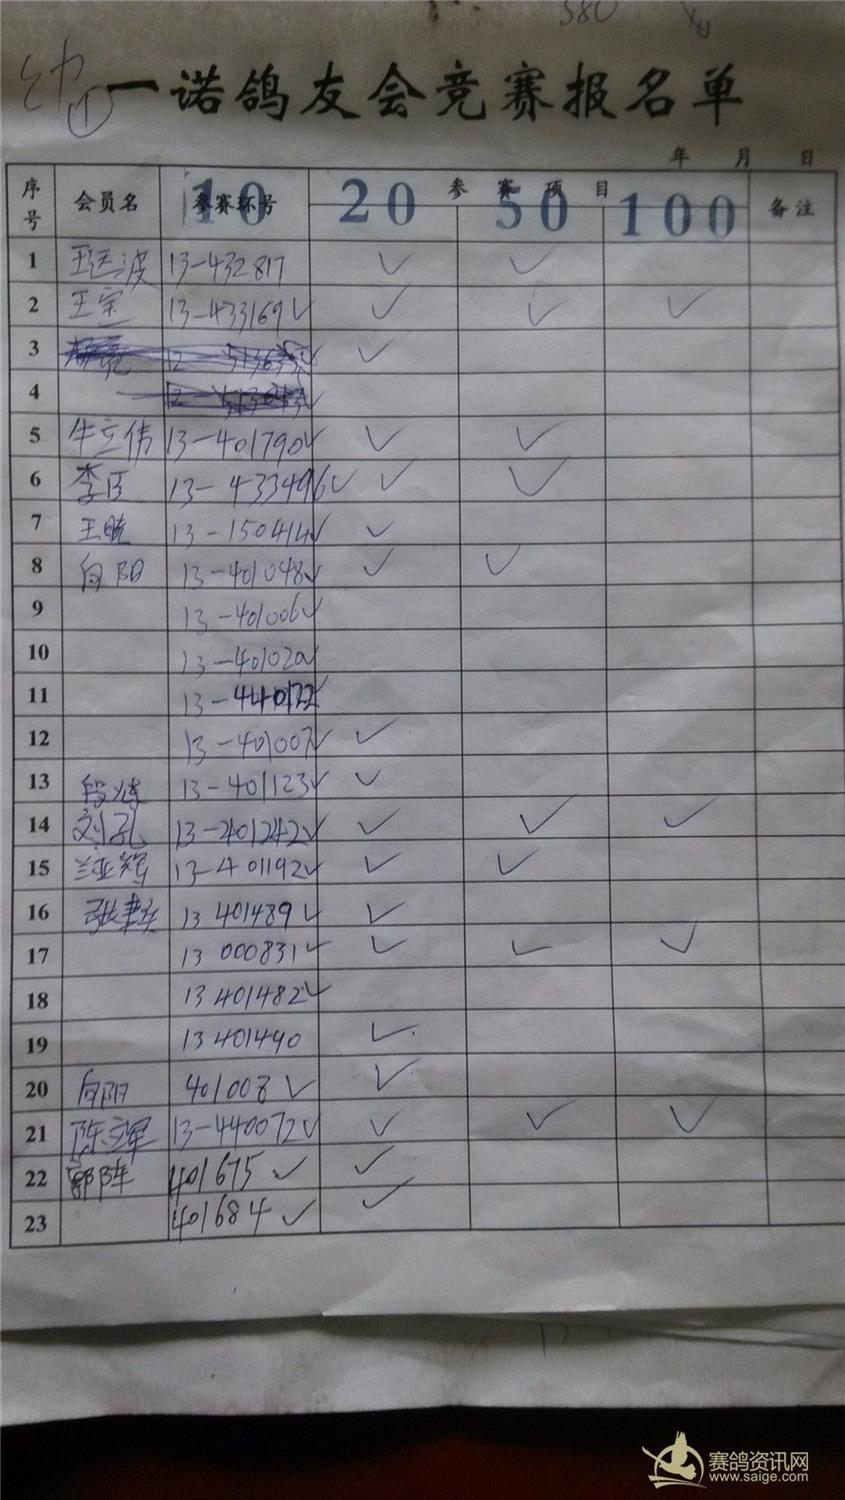 380
幼 ①
一诺鸽友会竞赛报名单
年 月 日
序号 会员名 参赛环号 10 参赛项目 20 50 100 备注
1 王运波 13-432817 ✓ ✓
2 王宝 13-433169 ✓ ✓ ✓ ✓
3 ✓ ✓
4 ✓
5 牛立伟 13-401790 ✓ ✓ ✓
6 李臣 13-433496 ✓ ✓ ✓
7 王晓 13-150414 ✓ ✓
8 向阳 13-401048 ✓ ✓ ✓
9 13-401006 ✓
10 13-401020 ✓
11 13-440122 ✓
12 13-401007 ✓ ✓
13 13-401123 ✓ ✓
14 刘孔 13-401242 ✓ ✓ ✓ ✓
15 兰亚辉 13-401192 ✓ ✓ ✓
16 13 401489 ✓ ✓
17 13 000831 ✓ ✓ ✓ ✓
18 13 401482 ✓
19 13 401490 ✓
20 向阳 401008 ✓ ✓
21 陈立军 13-440072 ✓ ✓ ✓ ✓
22 郭阵 401675 ✓ ✓
23 401684 ✓ ✓
赛鸽资讯网
www.saige.com